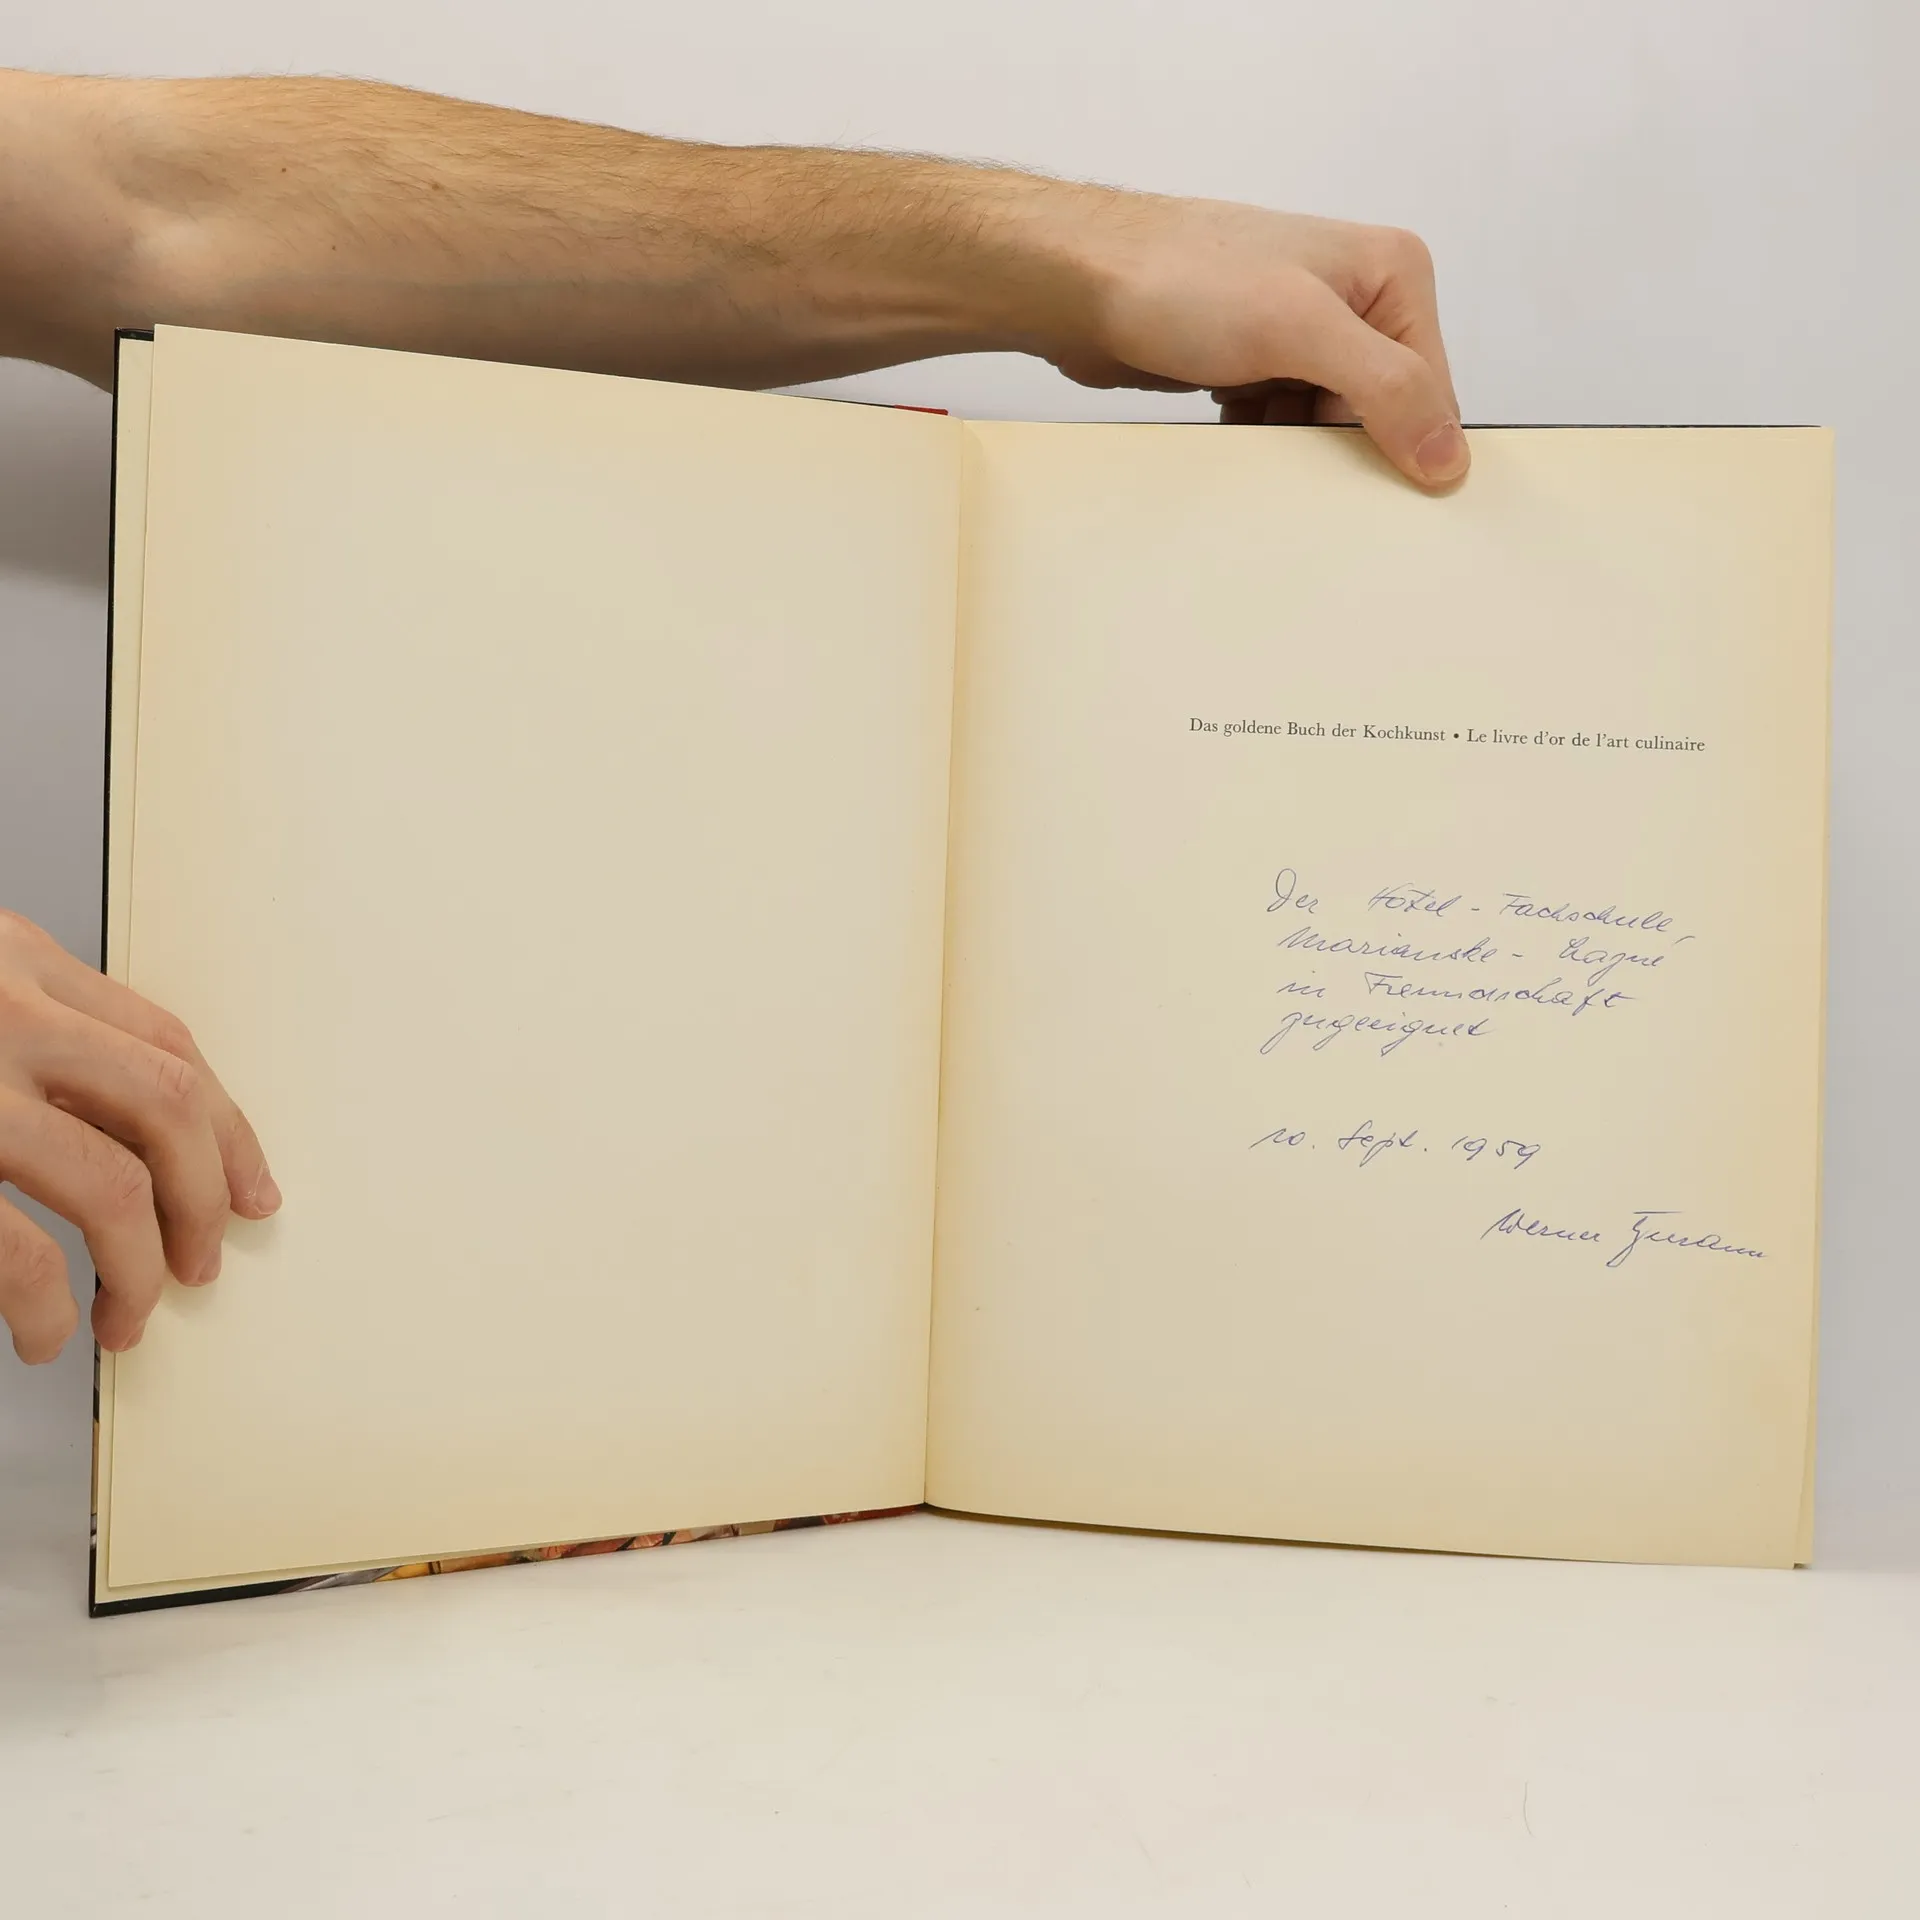 Das goldene Buch der Kochkunst • Le livre d'or de l'art culinaire
Der Hotel - Fachschule,
Marianske - Lazne
in Freundschaft
zugeeignet
10. Sept. 1959
Werner